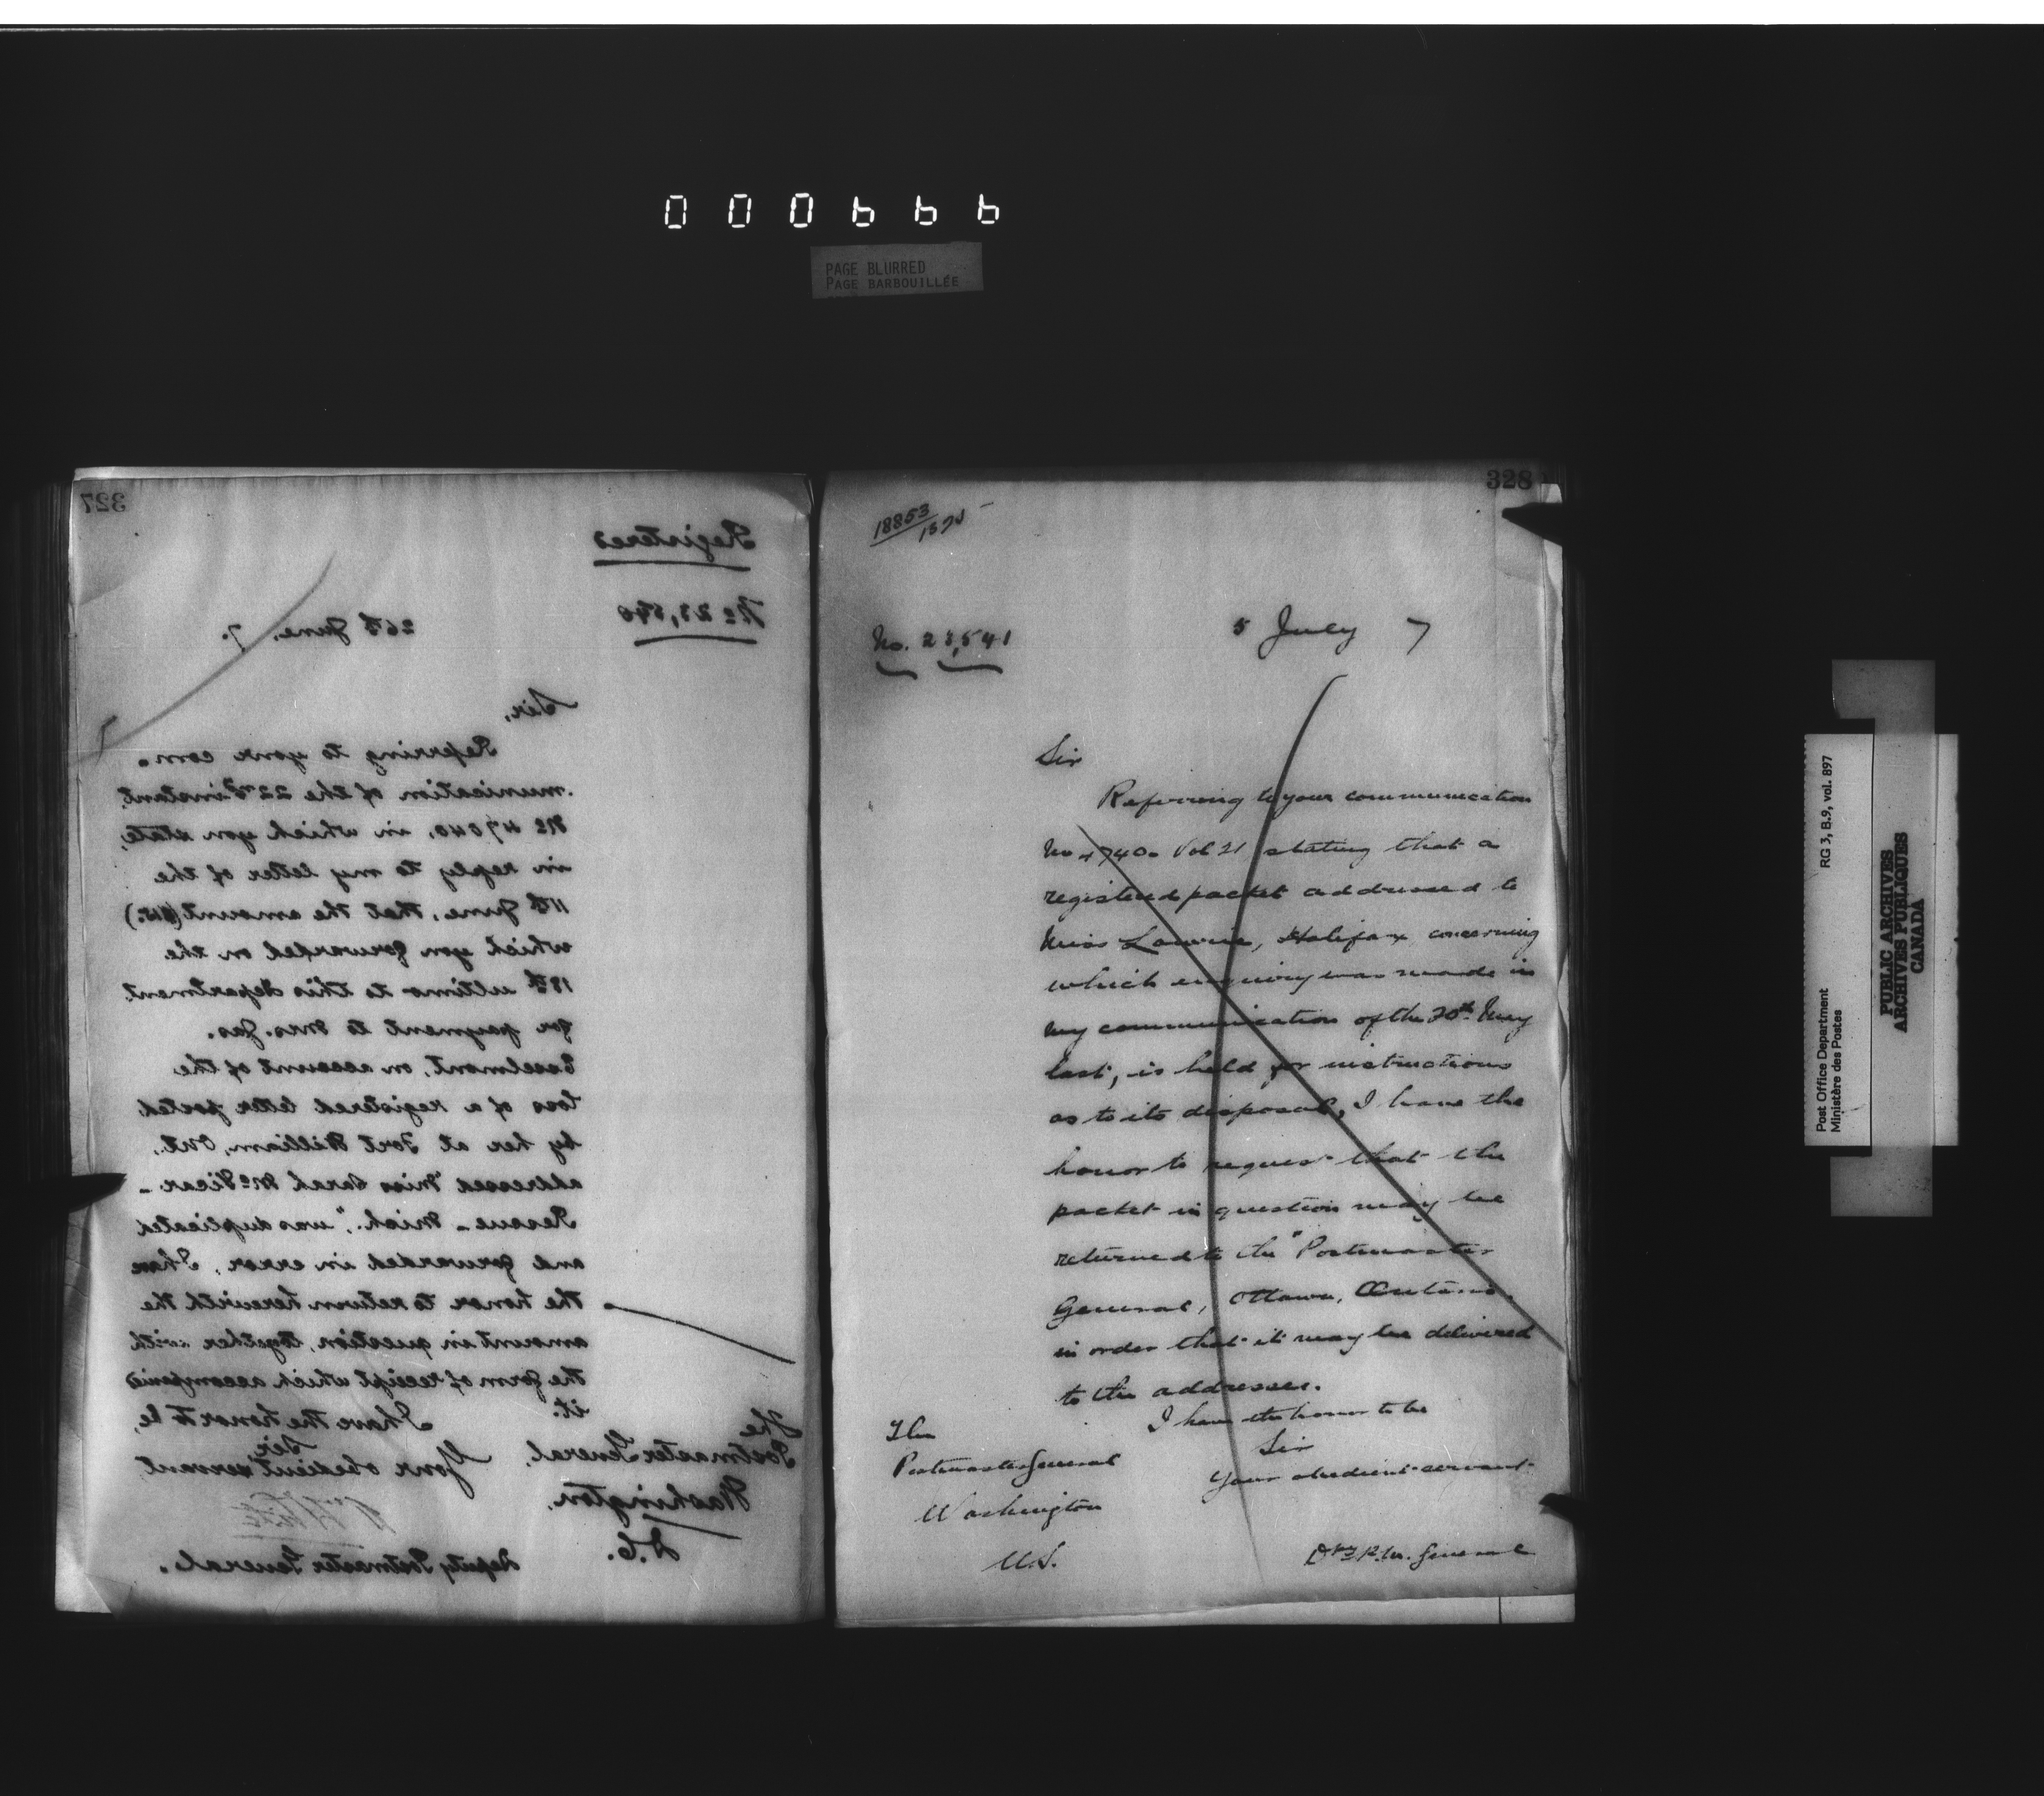 000666
PAGE BLURRED
PAGE BARBOUILLÉE
327
Registered
No 23,540
26th June, 7.
Sir,
Referring to your com-
munication of the 22nd instant,
No 47040, in which you state,
in reply to my letter of the
11th June, that the amount
which you forwarded on the
18th ultimo to this department
for payment to Mrs. Jas.
on account of the
loss of a registered letter posted
by her at Fort William, Ont.,
addressed "Miss Sarah McVicar -
Mich.", was duplicated
and forwarded in error, I have
the honor to return herewith the
amount in question, together with
the form of receipt which accompanied
it.
I have the honor to be,
Sir,
Your obedient servant,
Deputy Postmaster General.
The
Postmaster General,
Washington,
D.C.
328
18853
No. 23,541
5 July 7
Sir
Referring to your communication
Vol 21 stating that a
registered packet addressed to
Miss Laurie, Halifax, concerning
which enquiry was made in
my communication of the 20th May
last, is held for instructions
as to its disposal, I have the
honor to request that the
packet in question may be
returned to the "Postmaster
General, Ottawa, Ontario,
in order that it may be delivered
to the addressee.
I have the honor to be
Sir
Your obedient servant
Dpy P.M. General
The
Postmaster General
Washington
U.S.
Post Office Department
Ministère des Postes
RG 3, B.9, vol. 897
PUBLIC ARCHIVES
ARCHIVES PUBLIQUES
CANADA